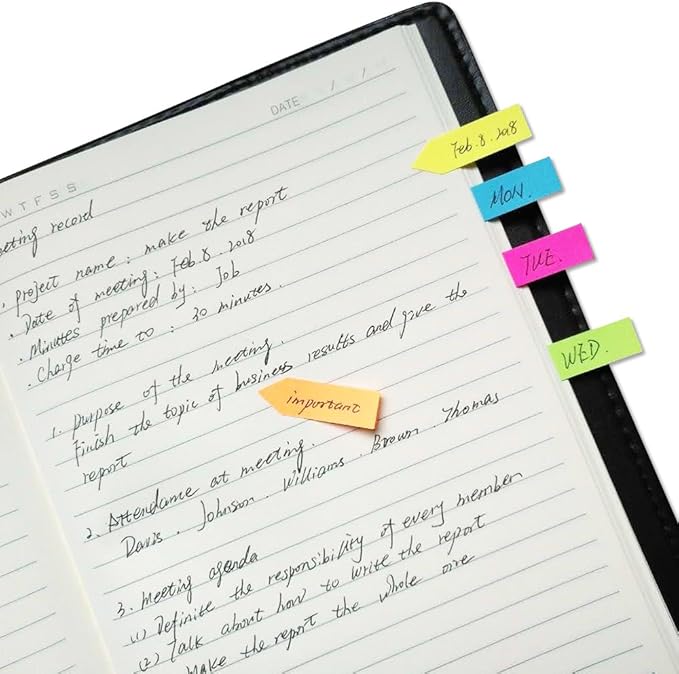 DATE / /
W T F S S
eeting record
. project name : make the report
. Date of meeting : Feb . 8 . 2018
. Minutes prepared by : Job
. Charge time to : 30 minutes .
1. purpose of the meeting .
Finish the topic of business results and give the
report
important
2. Attendance at meeting .
Davis . Johnson . Williams . Brown . Thomas
3. meeting agenda
(1) Definite the responsibility of every member
(2) Talk about how to write the report
Make the report the whole one
Feb . 8 . 2018
MON .
TUE .
WED .